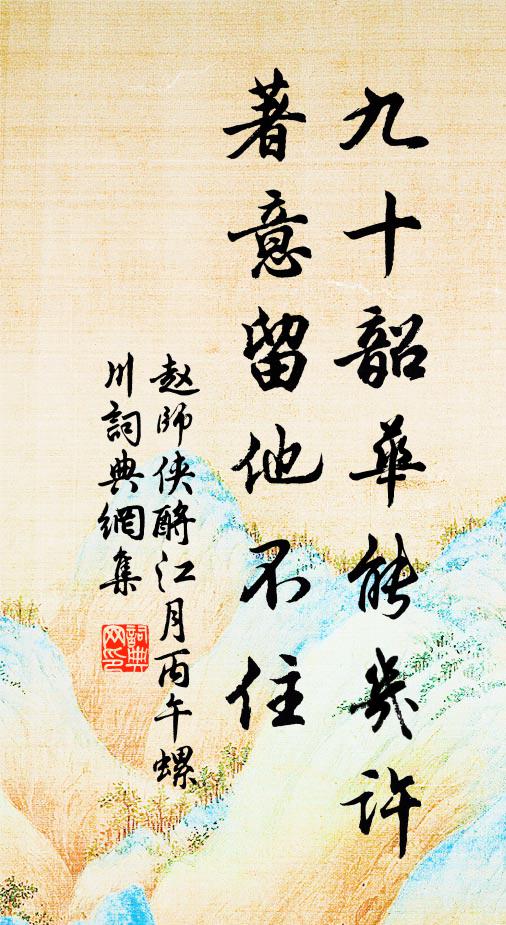 九十韶華能幾許
著意留他不住
赵師侠酹江月丙午螺
川詞典網集
詞典
网印